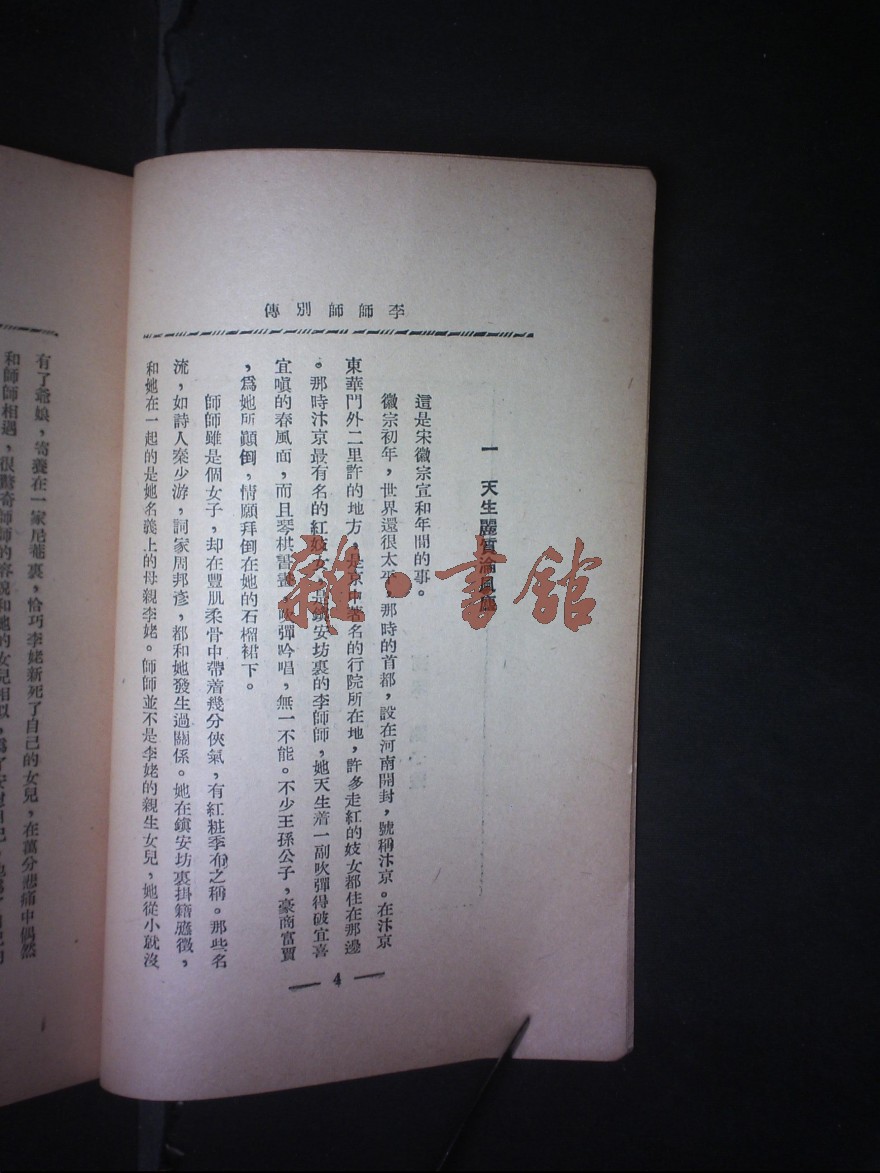 李師師別傳
一 天生麗質淪風塵
這是宋徽宗宣和年間的事。
徽宗初年，世界還很太平，那時的首都，設在河南開封，號稱汴京。在汴京
東華門外二里許的地方，是京中著名的行院所在地，許多走紅的妓女都住在那邊
。那時汴京最有名的紅妓女是鎮安坊裏的李師師，她天生着一副吹彈得破宜喜
宜嗔的春風面，而且琴棋書畫，吹彈吟唱，無一不能。不少王孫公子，豪商富賈
，爲她所顚倒，情願拜倒在她的石榴裙下。
師師雖是個女子，却在豐肌柔骨中帶着幾分俠氣，有紅粧季布之稱。那些名
流，如詩人秦少游，詞家周邦彥，都和她發生過關係。她在鎮安坊裏掛籍應徵，
和她在一起的是她名義上的母親李姥。師師並不是李姥的親生女兒，她從小就沒
— 4 —
有了爺娘，寄養在一家尼菴裏，恰巧李姥新死了自己的女兒，在萬分悲痛中偶然
和師師相遇，很驚奇師師的容貌和她的女兒相似，爲了安慰自己，
雜·書館